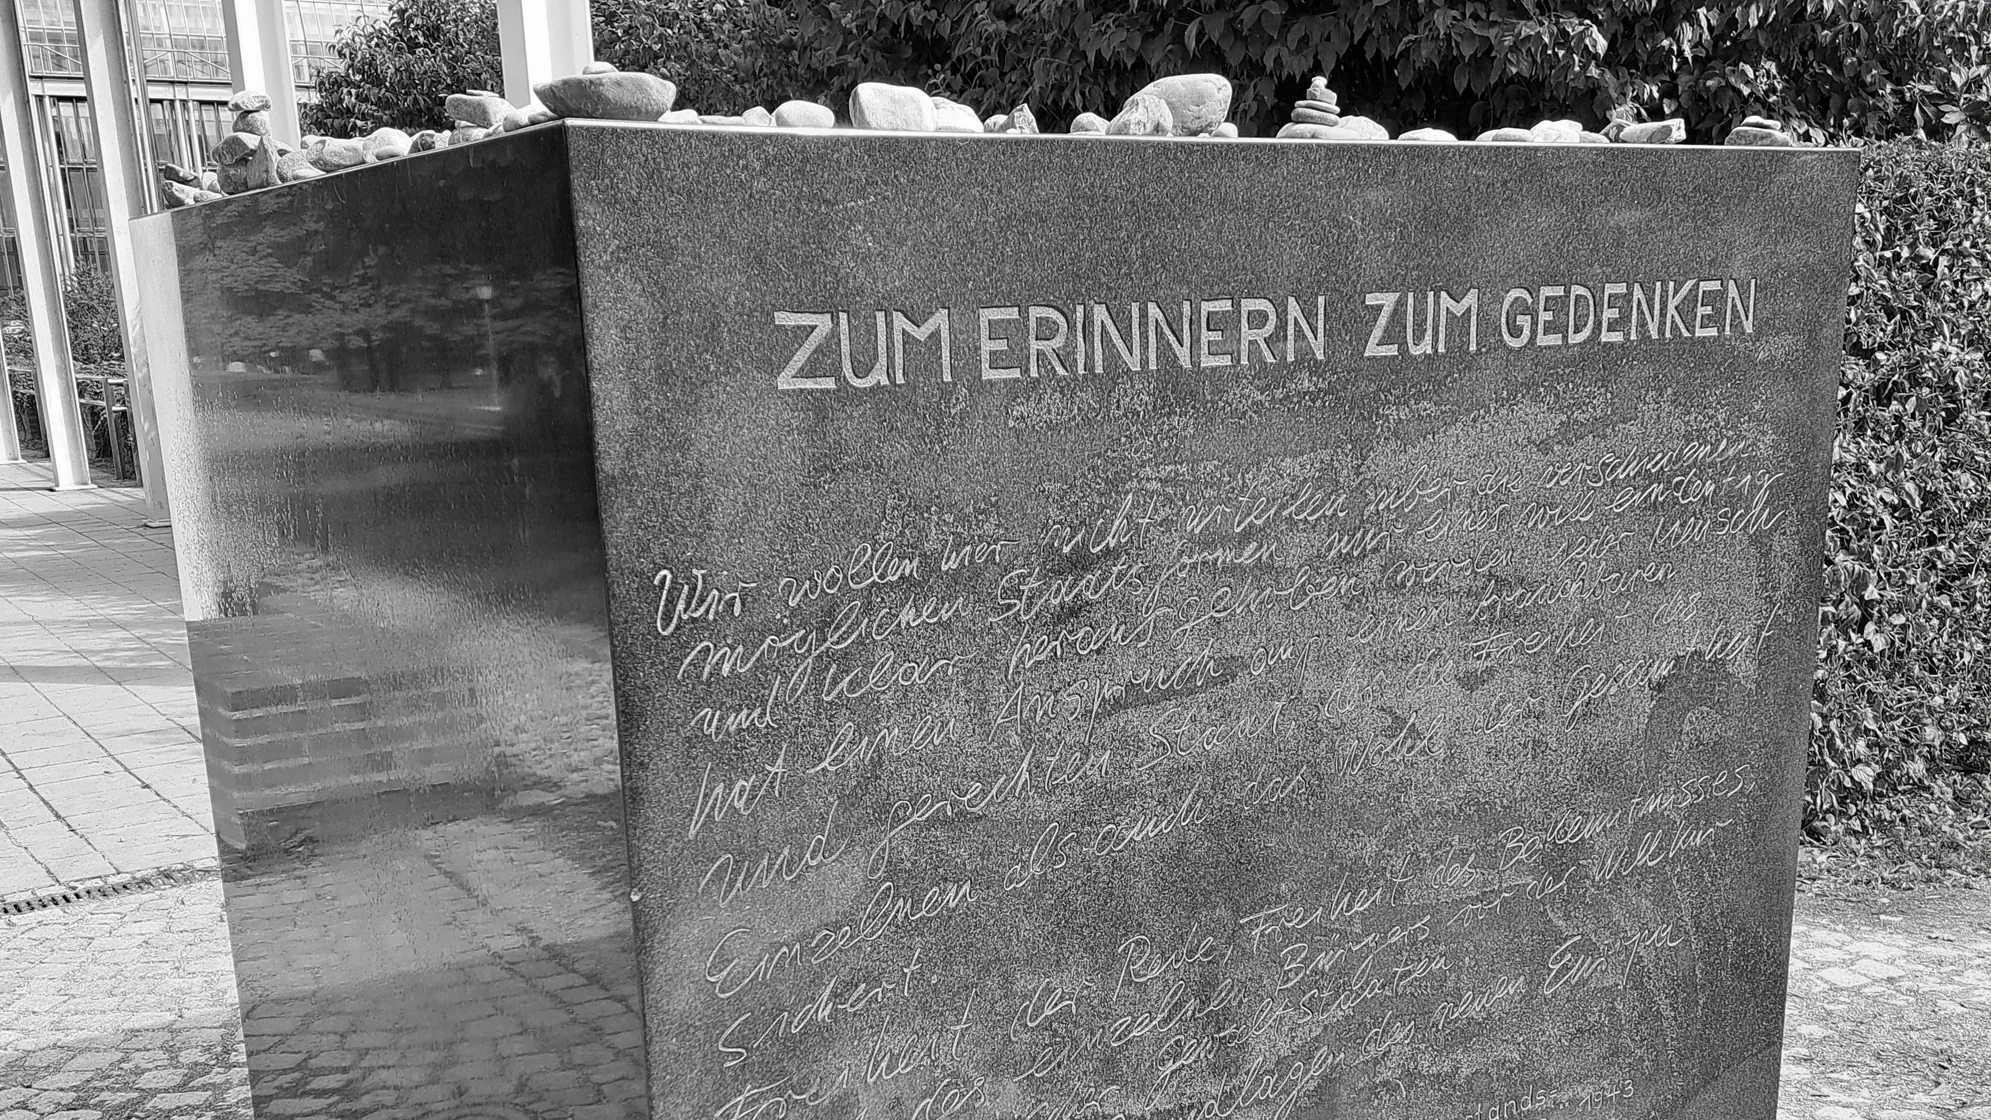 ZUM ERINNERN ZUM GEDENKEN
Wir wollen hier nicht urteilen über die verschiedenen
möglichen Staatsformen nur eines will eindeutig
und klar herausgehoben werden jeder Mensch
hat einen Anspruch auf einen brauchbaren
und gerechten Staat, der die Freiheit des
Einzelnen als auch das Wohl der Gesamtheit
sichert.
Freiheit der Rede, Freiheit des Bekenntnisses,
des einzelnen Bürgers vor der Willkür
Gewaltstaaten.
des neuen Europa
1943